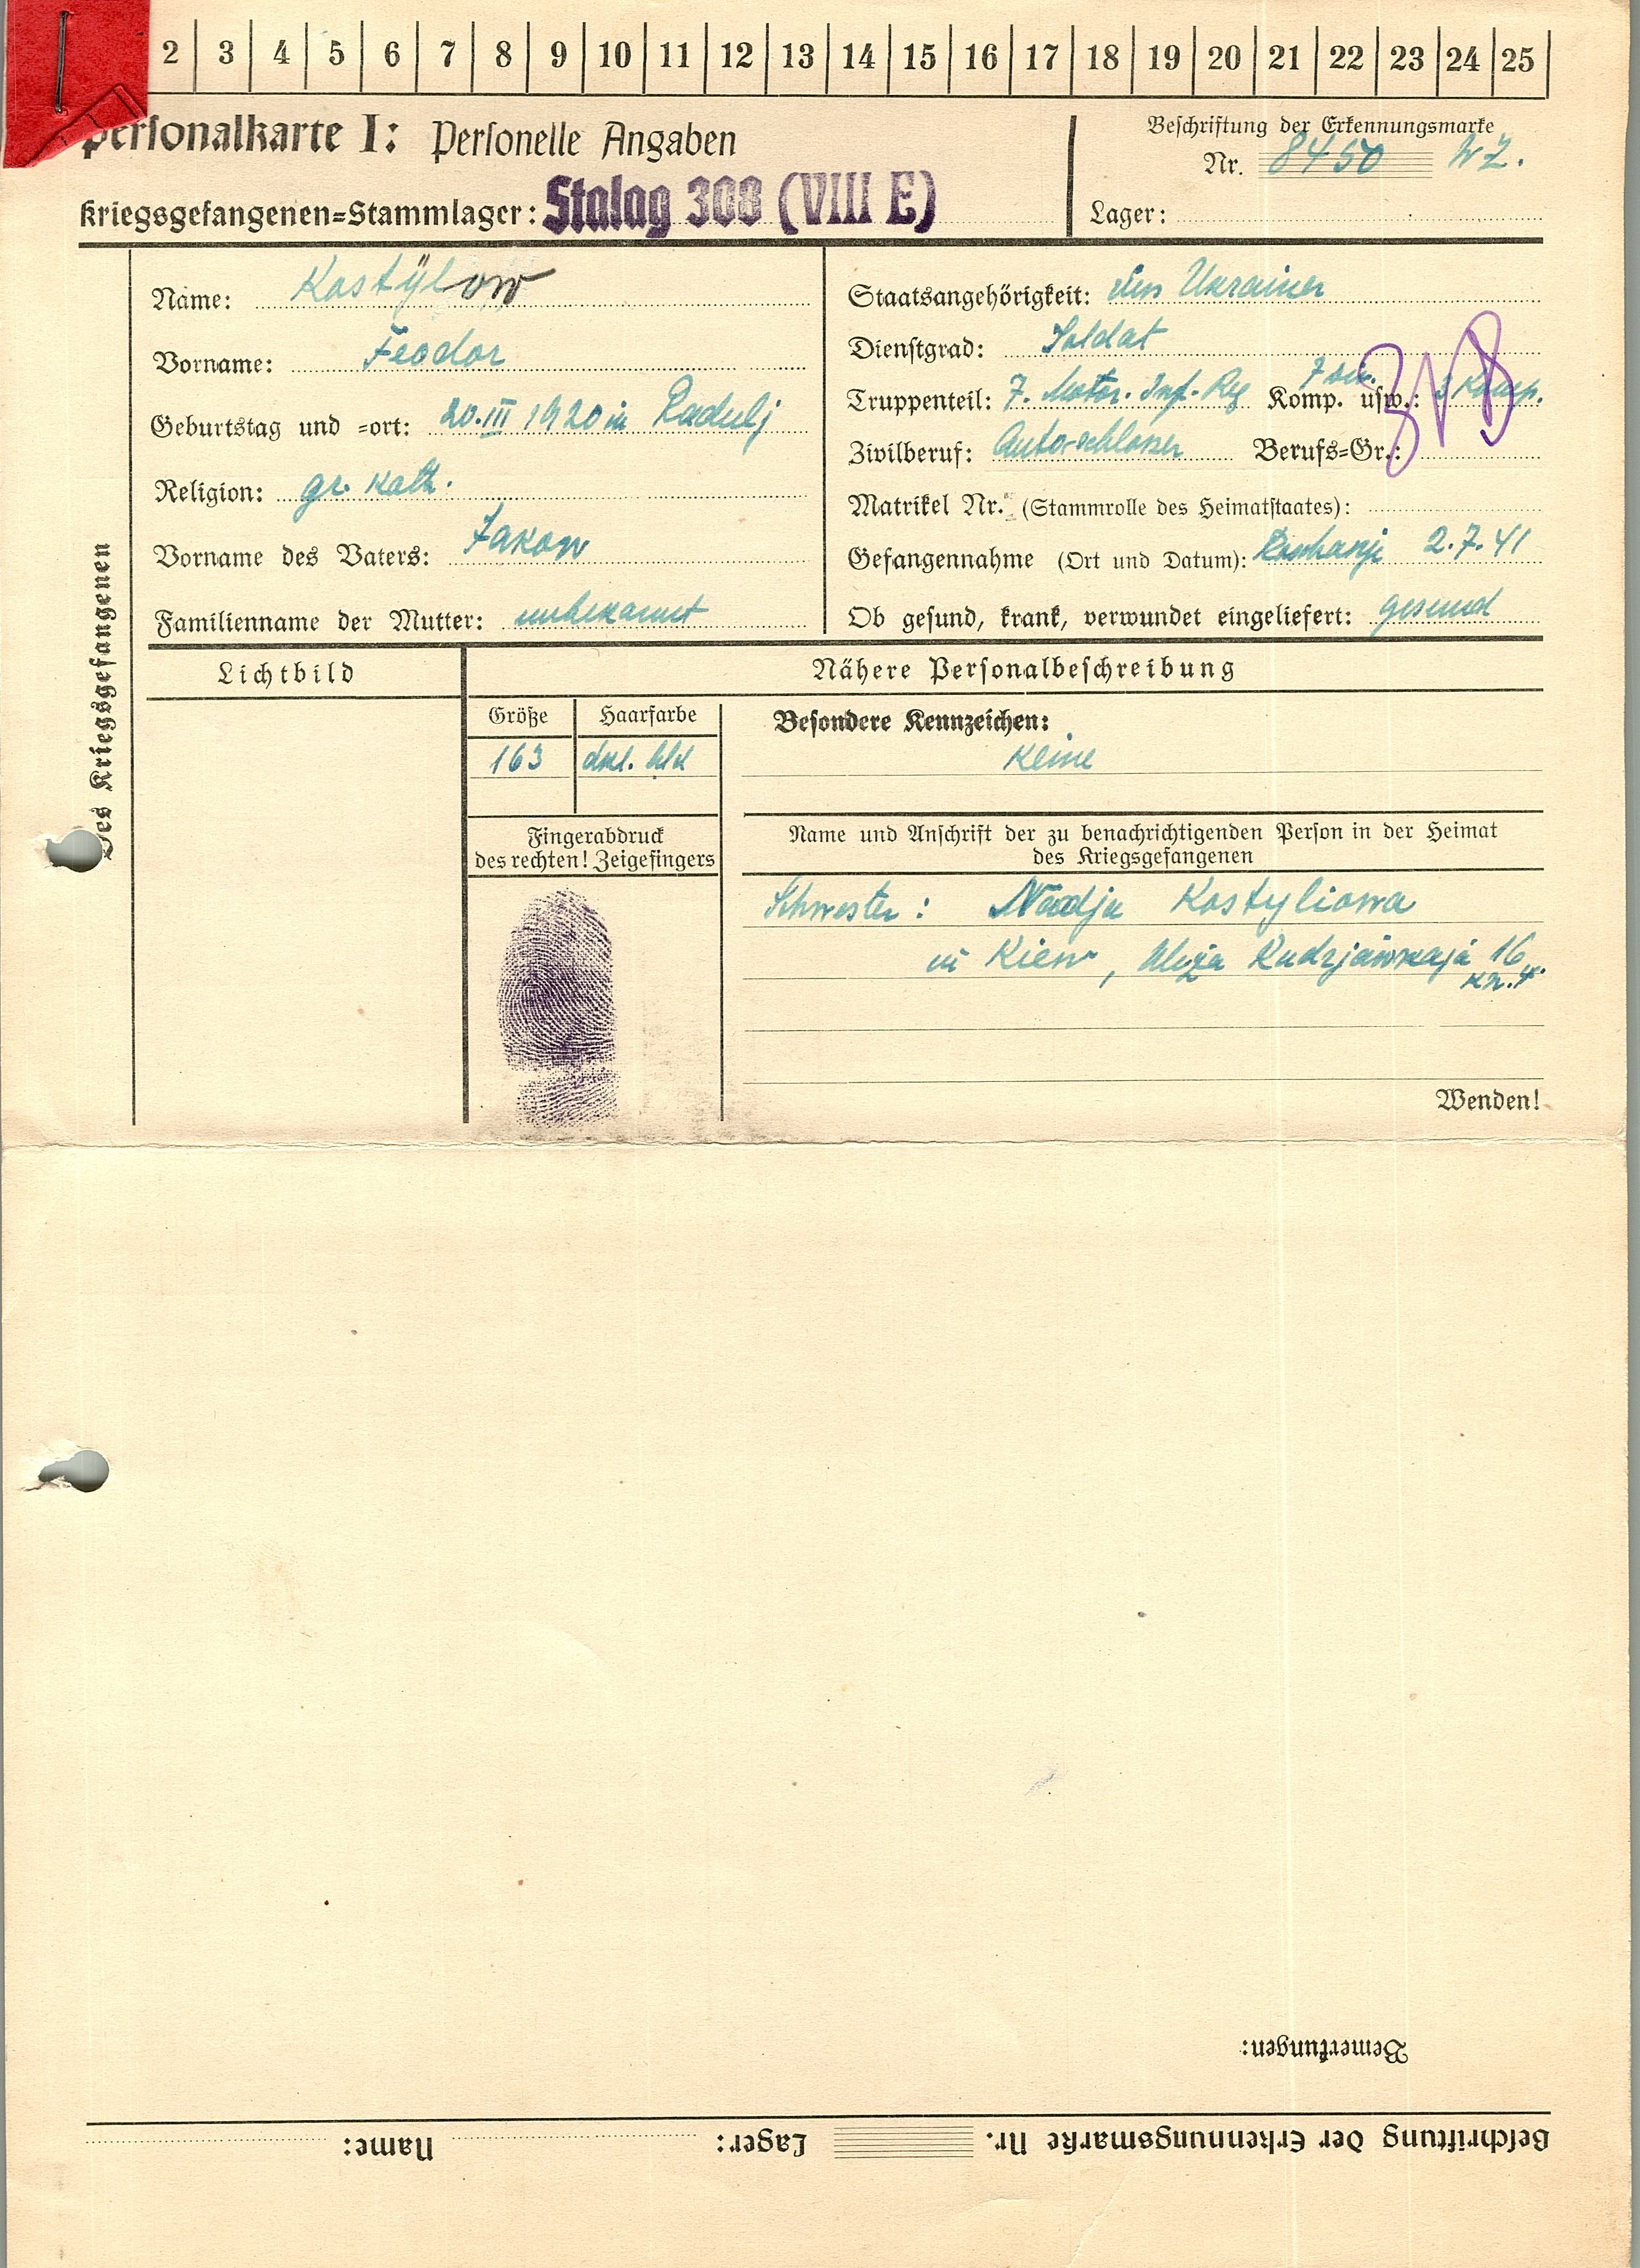 2 3 4 5 6 7 8 9 10 11 12 13 14 15 16 17 18 19 20 21 22 23 24 25
Personalkarte I: Personelle Angaben
Kriegsgefangenen=Stammlager: Stalag 308 (VIII E)
Beschriftung der Erkennungsmarke
Nr. 8450 WZ.
Lager:
Des Kriegsgefangenen
Name: Kostÿlow
Vorname: Feodor
Geburtstag und =ort: 20.III 1920 in Radulj
Religion: gr. kath.
Vorname des Vaters: Jakow
Familienname der Mutter: unbekannt
Staatsangehörigkeit: Ukrainer
Dienstgrad: Soldat
Truppenteil: 7. Motor. Inf.-Reg Komp. usw.: 3 Komp.
Zivilberuf: Autoschlosser Berufs=Gr.:
Matrikel Nr. (Stammrolle des Heimatstaates):
Gefangennahme (Ort und Datum): 2.7.41
Ob gesund, krank, verwundet eingeliefert: gesund
Lichtbild
Nähere Personalbeschreibung
Größe
163
Haarfarbe
dkl. bld
Besondere Kennzeichen:
Keine
Fingerabdruck
des rechten! Zeigefingers
Name und Anschrift der zu benachrichtigenden Person in der Heimat
des Kriegsgefangenen
Schwester: Nadja Kostyliowa
in Kiew, 16
kv. 4.
Wenden!
Bemerkungen:
Beschriftung der Erkennungsmarke Nr. Lager: Name: